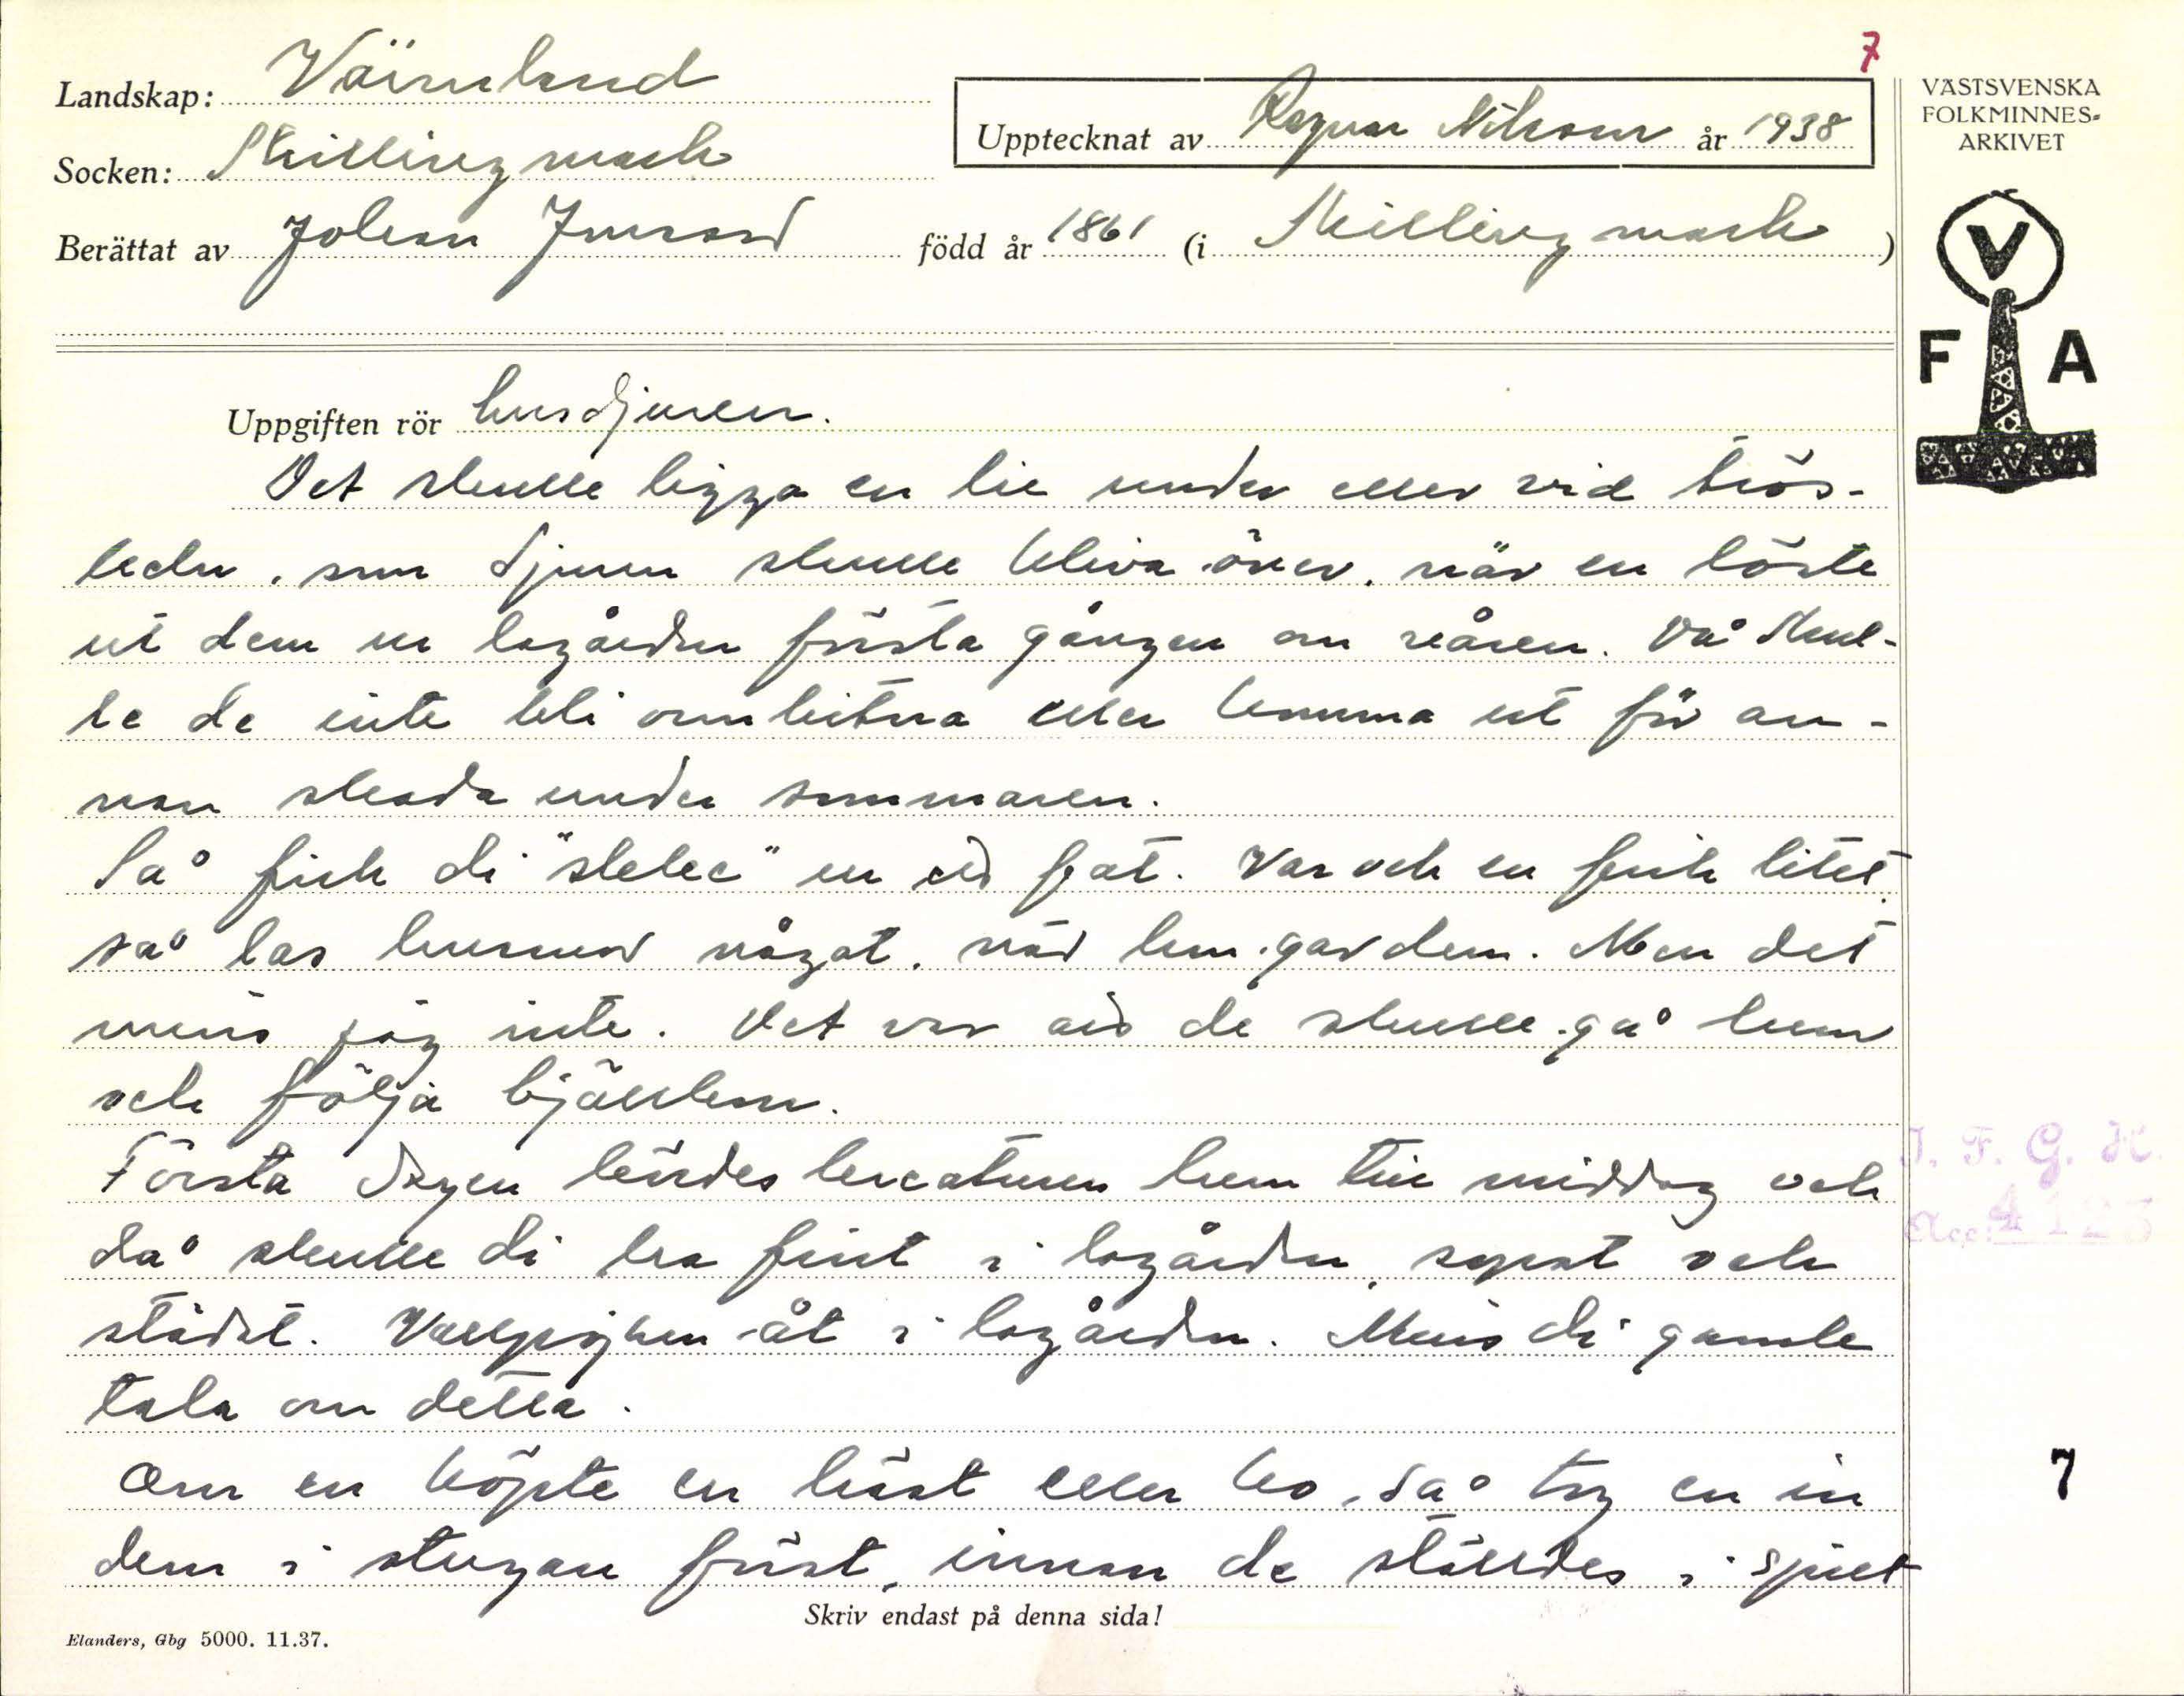 7
Landskap: Värmland
Upptecknat av Ragnar Nilsson år 1938
Socken: Skillingmark
Berättat av Johan Jonsson född år 1861 (i Skillingmark)
VÄSTSVENSKA
FOLKMINNES-
ARKIVET
V
F A
Uppgiften rör husdjuren.
Det skulle ligga en lie under eller vid trös-
keln, som djuren skulle kliva över, när en löste
ut dem ur lagården första gången om våren. Då skul-
le de inte bli ormbitna eller komma ut för an-
nan skada under sommaren.
Så fick di "sleke" ur ett fat. Var och en fick litet,
så las husmor något, när hon gav dem. Men det
mins jag inte. Det var att de skulle gå hem
och följa bjällkon.
Första dagen leddes kreaturen hem till middag och
då skulle di ha fint i lagården, sopat och
städat. Vallpojken åt i lagården. Mins di gamle
tala om detta.
Om en köpte en häst eller ko, så tog en in
dem i stugan först, innan de ställdes i spilt
I. F. G. H.
Acc. 4123
7
Skriv endast på denna sida!
Elanders, Gbg 5000. 11.37.